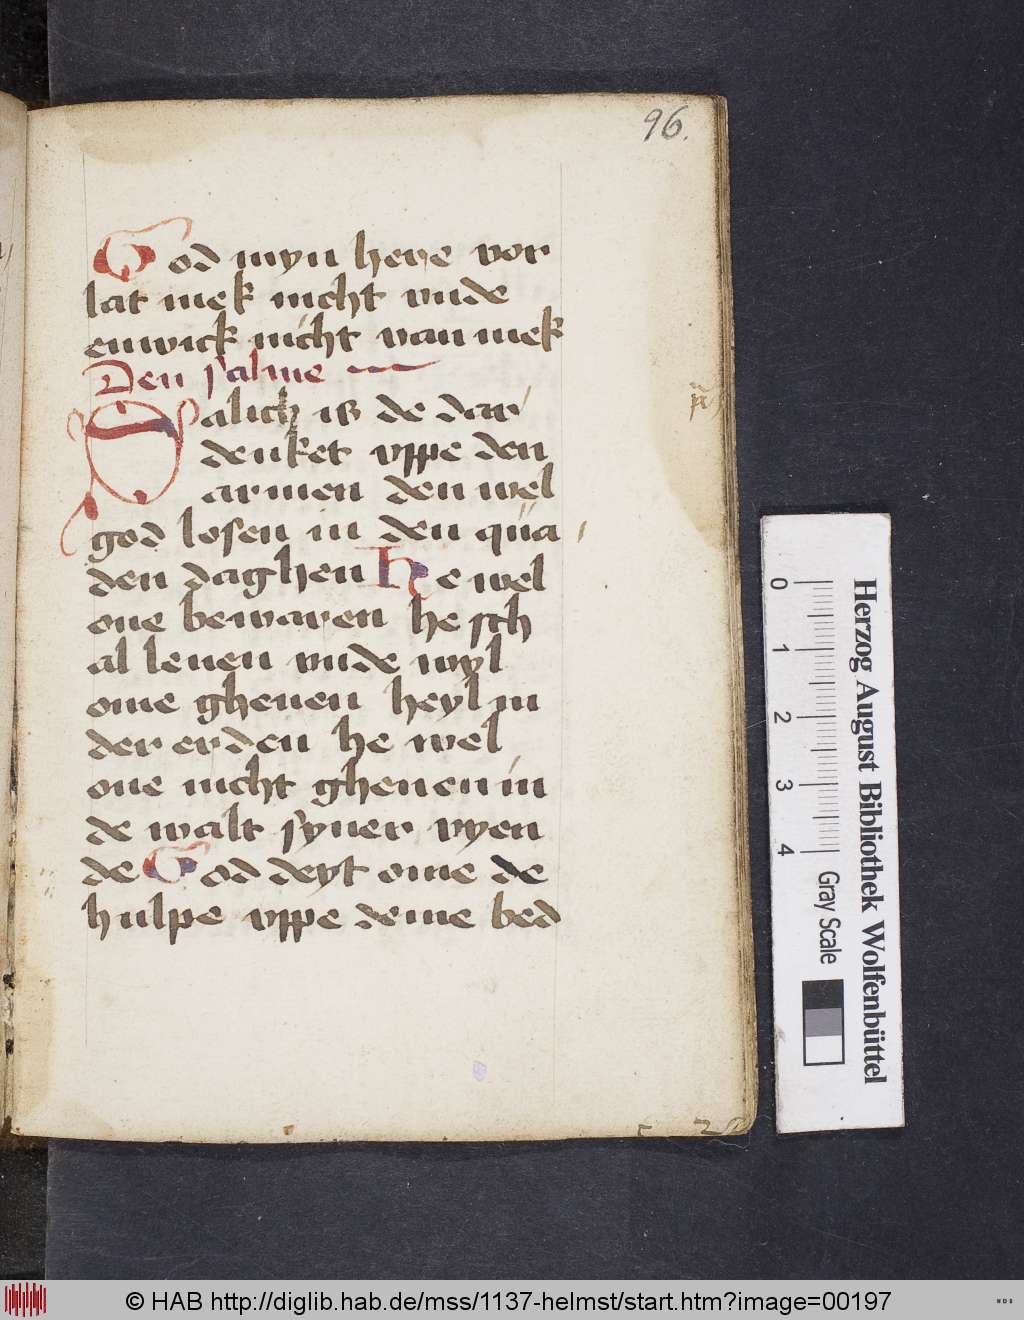 96.
God myn here vor
lat mek nicht vnde
enwick nicht van mek
Den salme
Salich is de dar
denket vppe den
armen den wel
god losen in den qua
den daghen He wel
one bewaren he sch
al leuen vnde wyl
ome gheuen heyl in
der erden he wel
one nicht gheuen in
de walt syner vyen
de God deyt ome de
hulpe vppe deme bed
Herzog August Bibliothek Wolfenbüttel
0 1 2 3 4 Gray Scale
© HAB http://diglib.hab.de/mss/1137-helmst/start.htm?image=00197